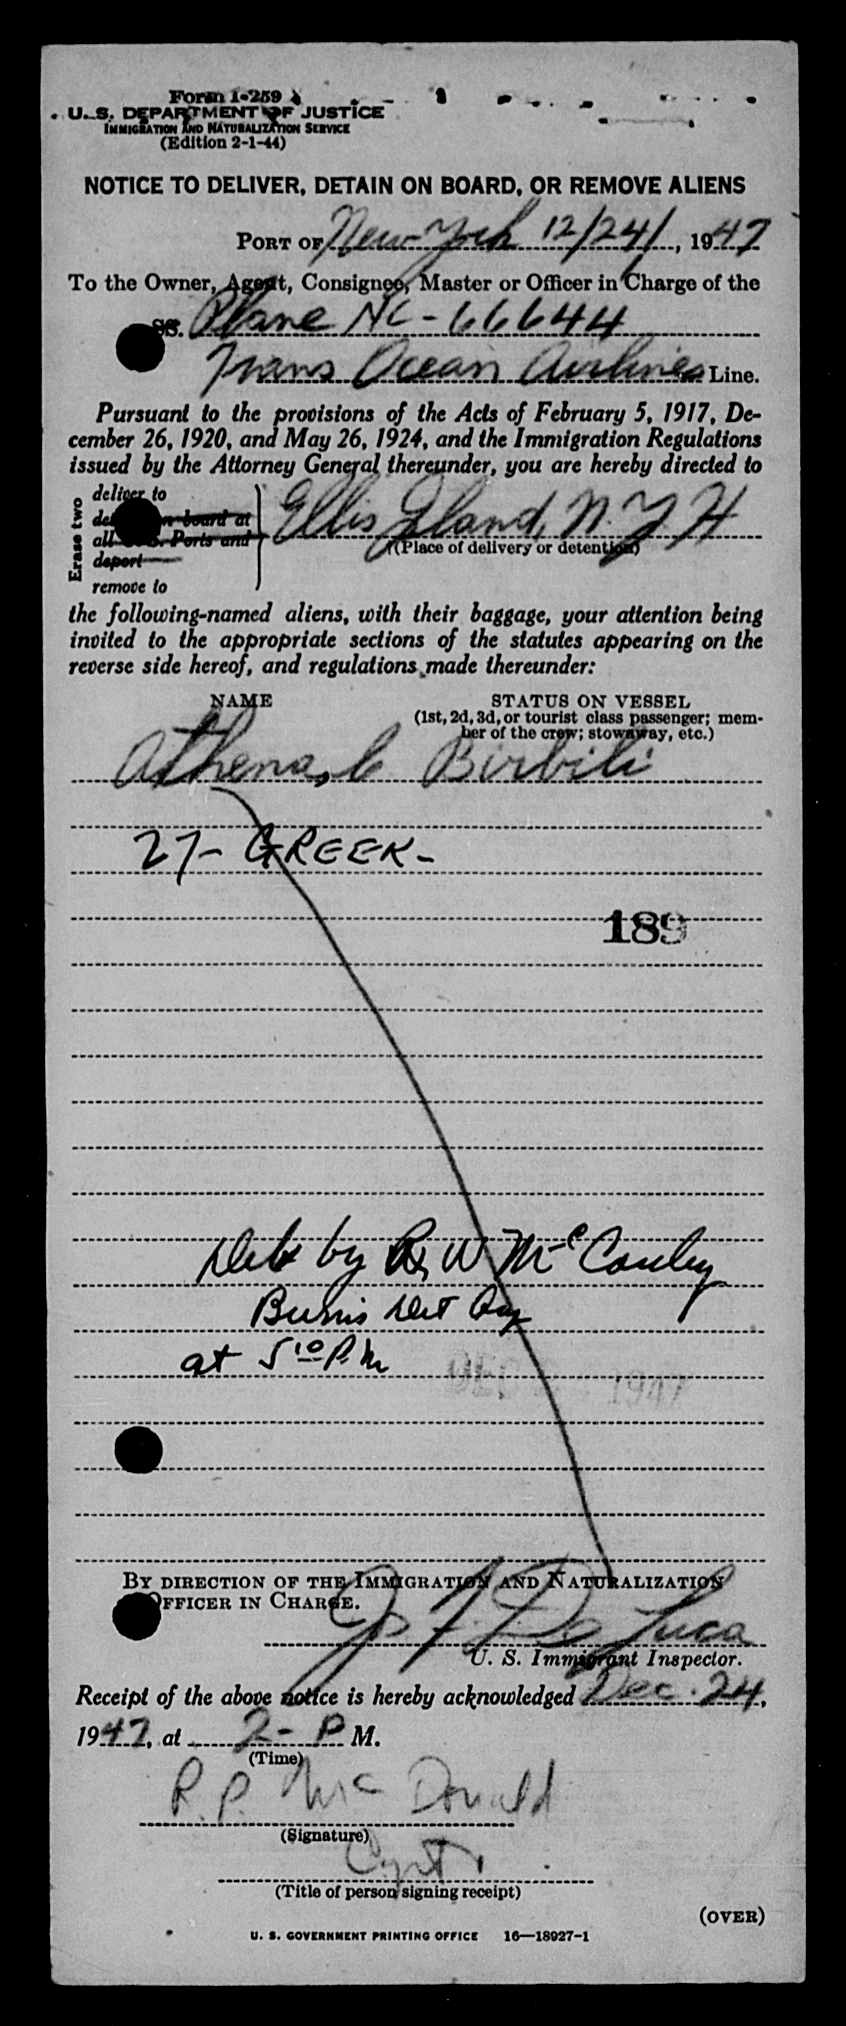 Form I-259
U. S. DEPARTMENT OF JUSTICE
IMMIGRATION AND NATURALIZATION SERVICE
(Edition 2-1-44)
NOTICE TO DELIVER, DETAIN ON BOARD, OR REMOVE ALIENS
PORT OF New York 12/24/, 1947
To the Owner, Agent, Consignee, Master or Officer in Charge of the
SS. Plane NC-66644
Trans Ocean Airlines Line.
Pursuant to the provisions of the Acts of February 5, 1917, De-
cember 26, 1920, and May 26, 1924, and the Immigration Regulations
issued by the Attorney General thereunder, you are hereby directed to
Erase two
deliver to
board at
all Ports and
deport
remove to
Ellis Island, N. Y. H
(Place of delivery or detention)
the following-named aliens, with their baggage, your attention being
invited to the appropriate sections of the statutes appearing on the
reverse side hereof, and regulations made thereunder:
NAME STATUS ON VESSEL
(1st, 2d, 3d, or tourist class passenger; mem-
ber of the crew; stowaway, etc.)
Athena, C Birbili
27- GREEK-
189
by R. W. McCauley
Burns Det Agy
at 5 10 P.M
DEC 1947
BY DIRECTION OF THE IMMIGRATION AND NATURALIZATION
OFFICER IN CHARGE.
De Luca
U. S. Immigrant Inspector.
Receipt of the above notice is hereby acknowledged Dec. 24,
1947, at 2- P M.
(Time)
R.P. McDonald
(Signature)
(Title of person signing receipt)
(OVER)
U. S. GOVERNMENT PRINTING OFFICE 16—18927-1